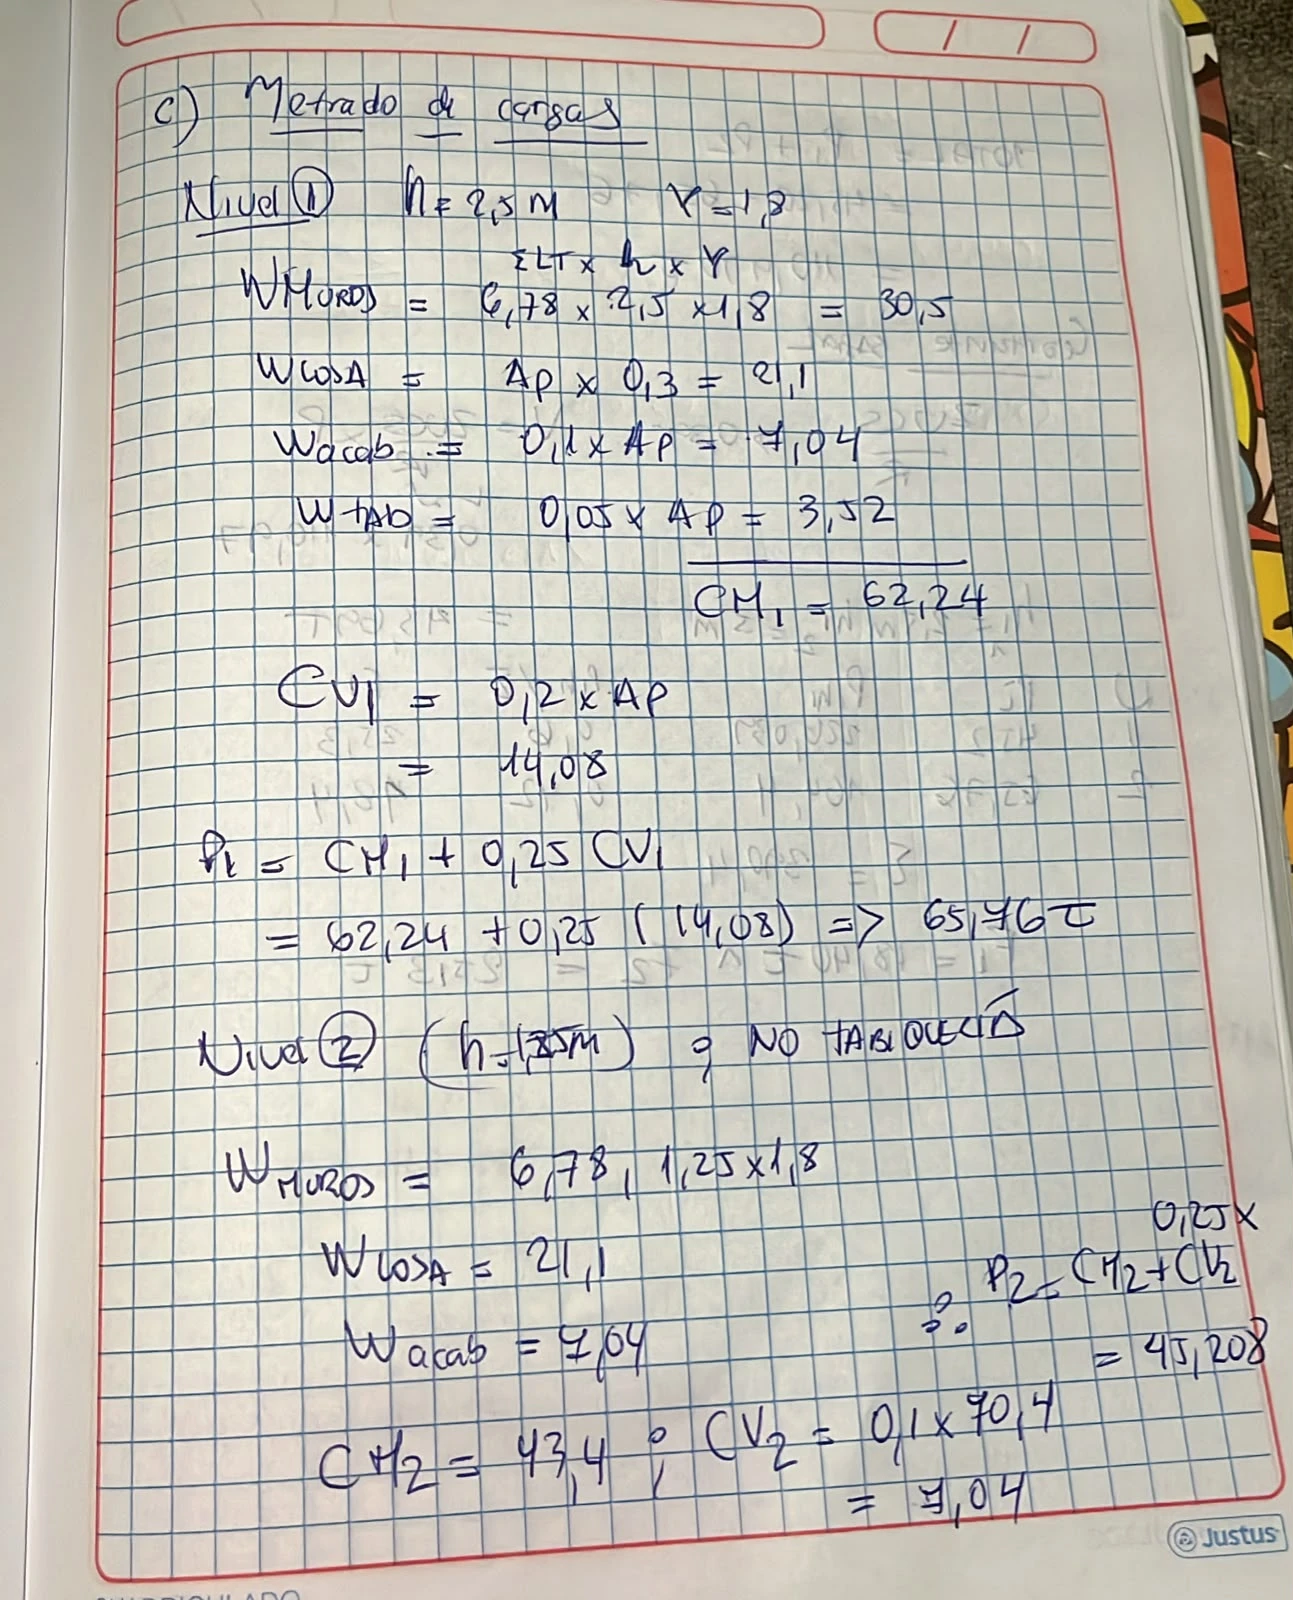 c) Metrado de cargas
Nivel ① h = 2,5 m γ = 1,8
ΣLT x h x γ
WMUROS = 6,78 x 2,5 x 1,8 = 30,5
WLOSA = Ap x 0,3 = 21,1
Wacab = 0,1 x Ap = 7,04
Wtab = 0,05 x Ap = 3,52
CM1 = 62,24
CV1 = 0,2 x Ap
= 14,08
P1 = CM1 + 0,25 CV1
= 62,24 + 0,25 (14,08) => 65,76 T
Nivel ② (h = 1,25m) ; NO TABIQUERÍA
WMUROS = 6,78 , 1,25 x 1,8
WLOSA = 21,1
Wacab = 7,04
CM2 = 43,4 ; CV2 = 0,1 x 70,4
= 7,04
0,25 x
∴ P2 = CM2 + CV2
= 45,208
Justus